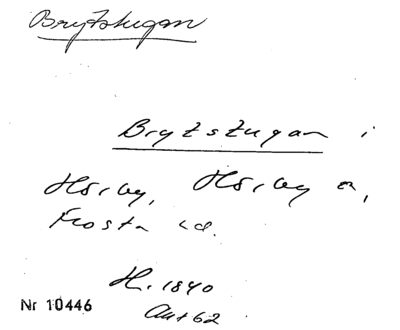 Brytstugan
Brytstugan i
Hörby, Hörby s,
Frosta hd.
H. 1840
Akt 62
Nr 10446